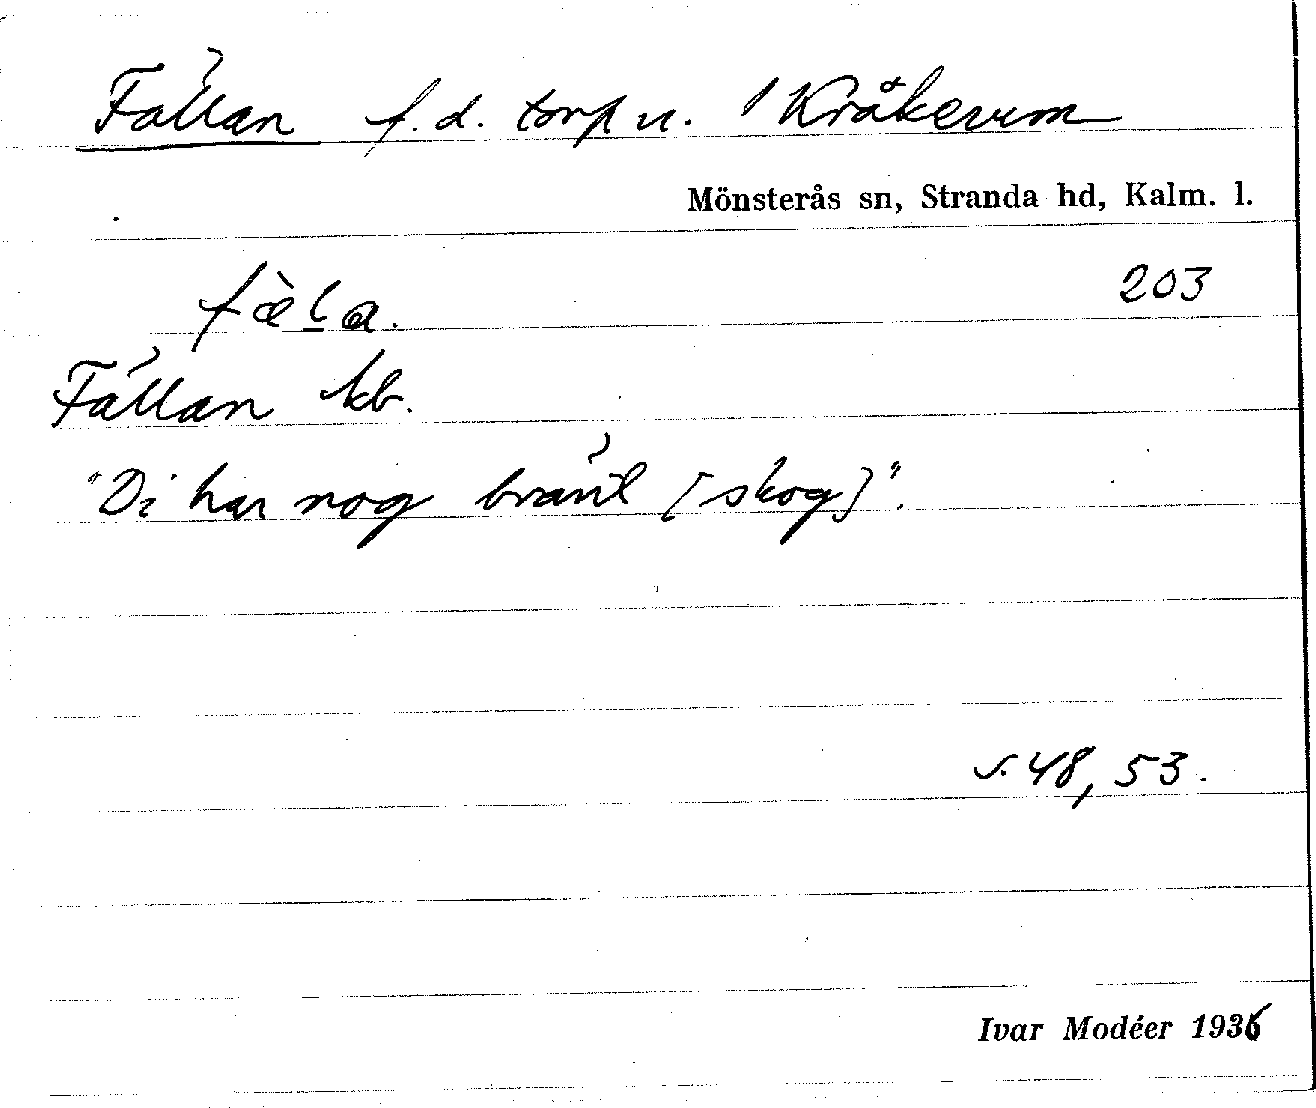 Fällan f.d. torp u. 1 Kråkerum
Mönsterås sn, Stranda hd, Kalm. l.
203
fæ̀l̲a.
Fällan kb.
"Di har nog bränt [skog]".
s. 48, 53.
Ivar Modéer 1936